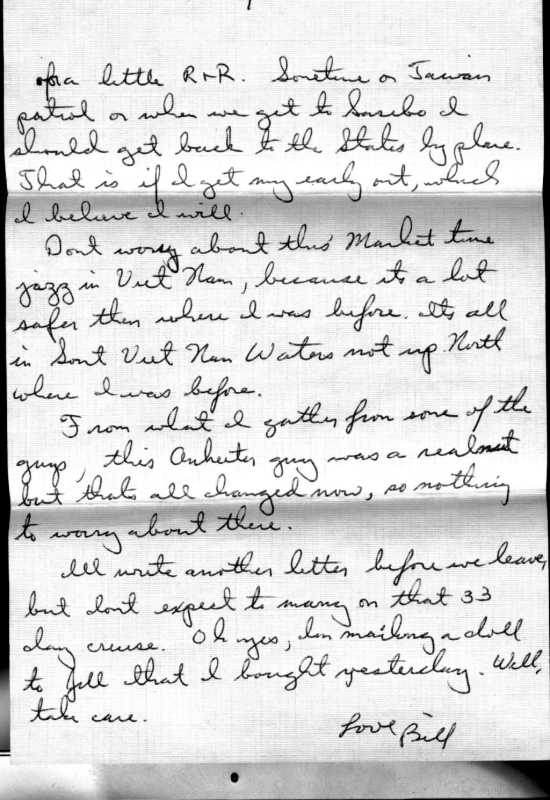 for a little R+R. Sometime on Taiwan
patrol or when we get to Sasebo I
should get back to the States by plane.
That is if I get my early out, which
I believe I will.
Dont worry about this Market time
jazz in Viet Nam, because its a lot
safer then where I was before. Its all
in Sout Viet Nam Waters not up North
where I was before.
From what I gather from some of the
guys, this Arnheiter guy was a real nut
but thats all changed now, so nothing
to worry about there.
Ill write another letter before we leave,
but dont expect to many on that 33
day cruise. Oh yes, Im mailing a doll
to Jill that I bought yesterday. Well,
take care.
Love Bill